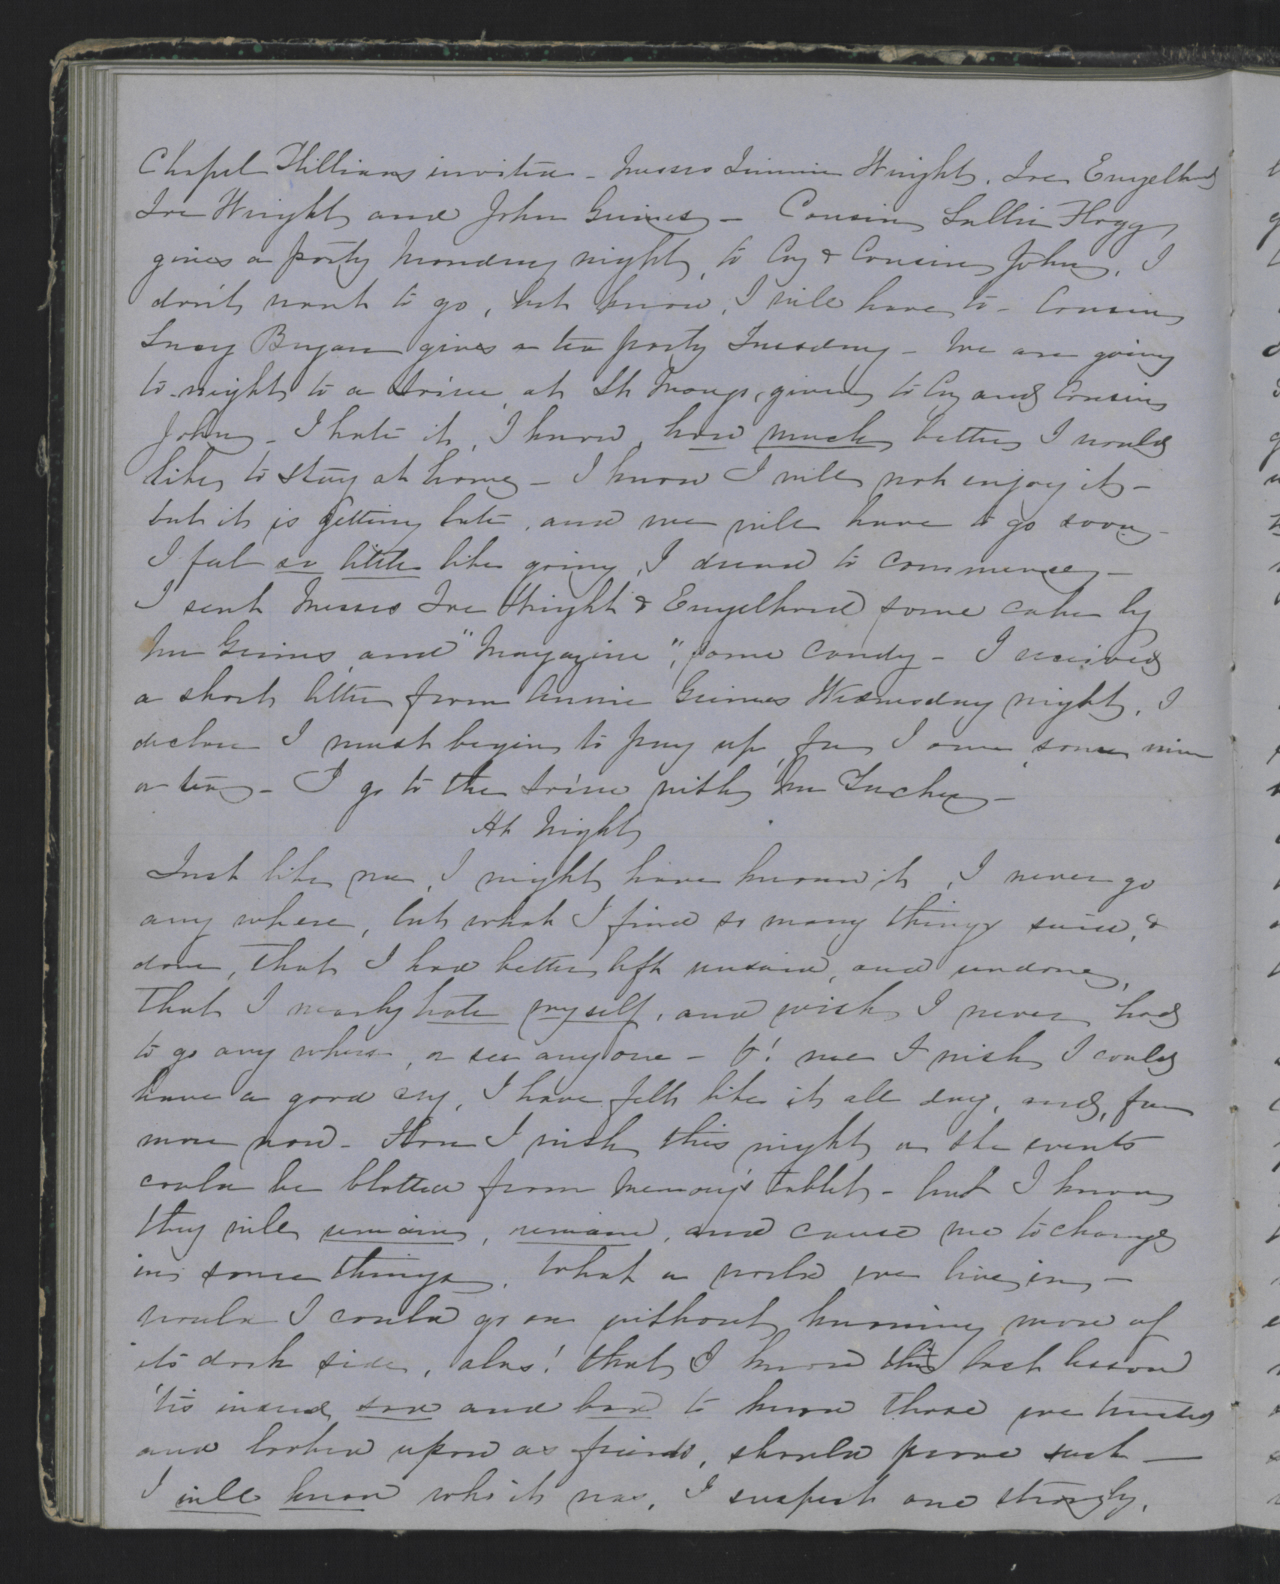 Chapel Hillians invited - Messrs Jimmie Wright, Joe Engelhard
Joe Wright, and John Grimes - Cousin Sallie Hogg
gives a party Monday night, to Coz & Cousin John, I
don't want to go, but know, I will have to - Cousin
Lucy Bryan gives a tea party Tuesday - We are going
to-night to a Soiree, at St Marys, given to Coz and Cousin
John - I hate it, I know, how much better I would
like to stay at home - I know I will not enjoy it -
but it is getting late, and we will have to go soon -
I feel so little like going, I dread to commence -
I sent Messrs Joe Wright & Engelhard some cake by
Mr Grimes, and "Magazine", some candy - I received
a short letter from Annie Grimes Wednesday night, I
declare I must begin to pay up, for I owe some nine
or ten - I go to the Soiree with Mr Tucker -
At Night
Just like me, I might have known it, I never go
any where, but what I find so many things said, &
done, that I had better left unsaid, and undone,
that I nearly hate myself, and wish I never had
to go any where, or see any one - O! me I wish I could
have a good cry, I have felt like it all day, and, far
more now - How I wish this night or the events
could be blotted from Memory's tablet - but I know
they will remain, remain, and cause me to change
in some things. What a world we live in -
would I could go on without knowing more of
its dark side, alas! that I know this last lesson
'tis indeed, sad and hard to know those we trusted
and looked upon as friends, should prove such -
I will know who it was, I suspect one strongly.